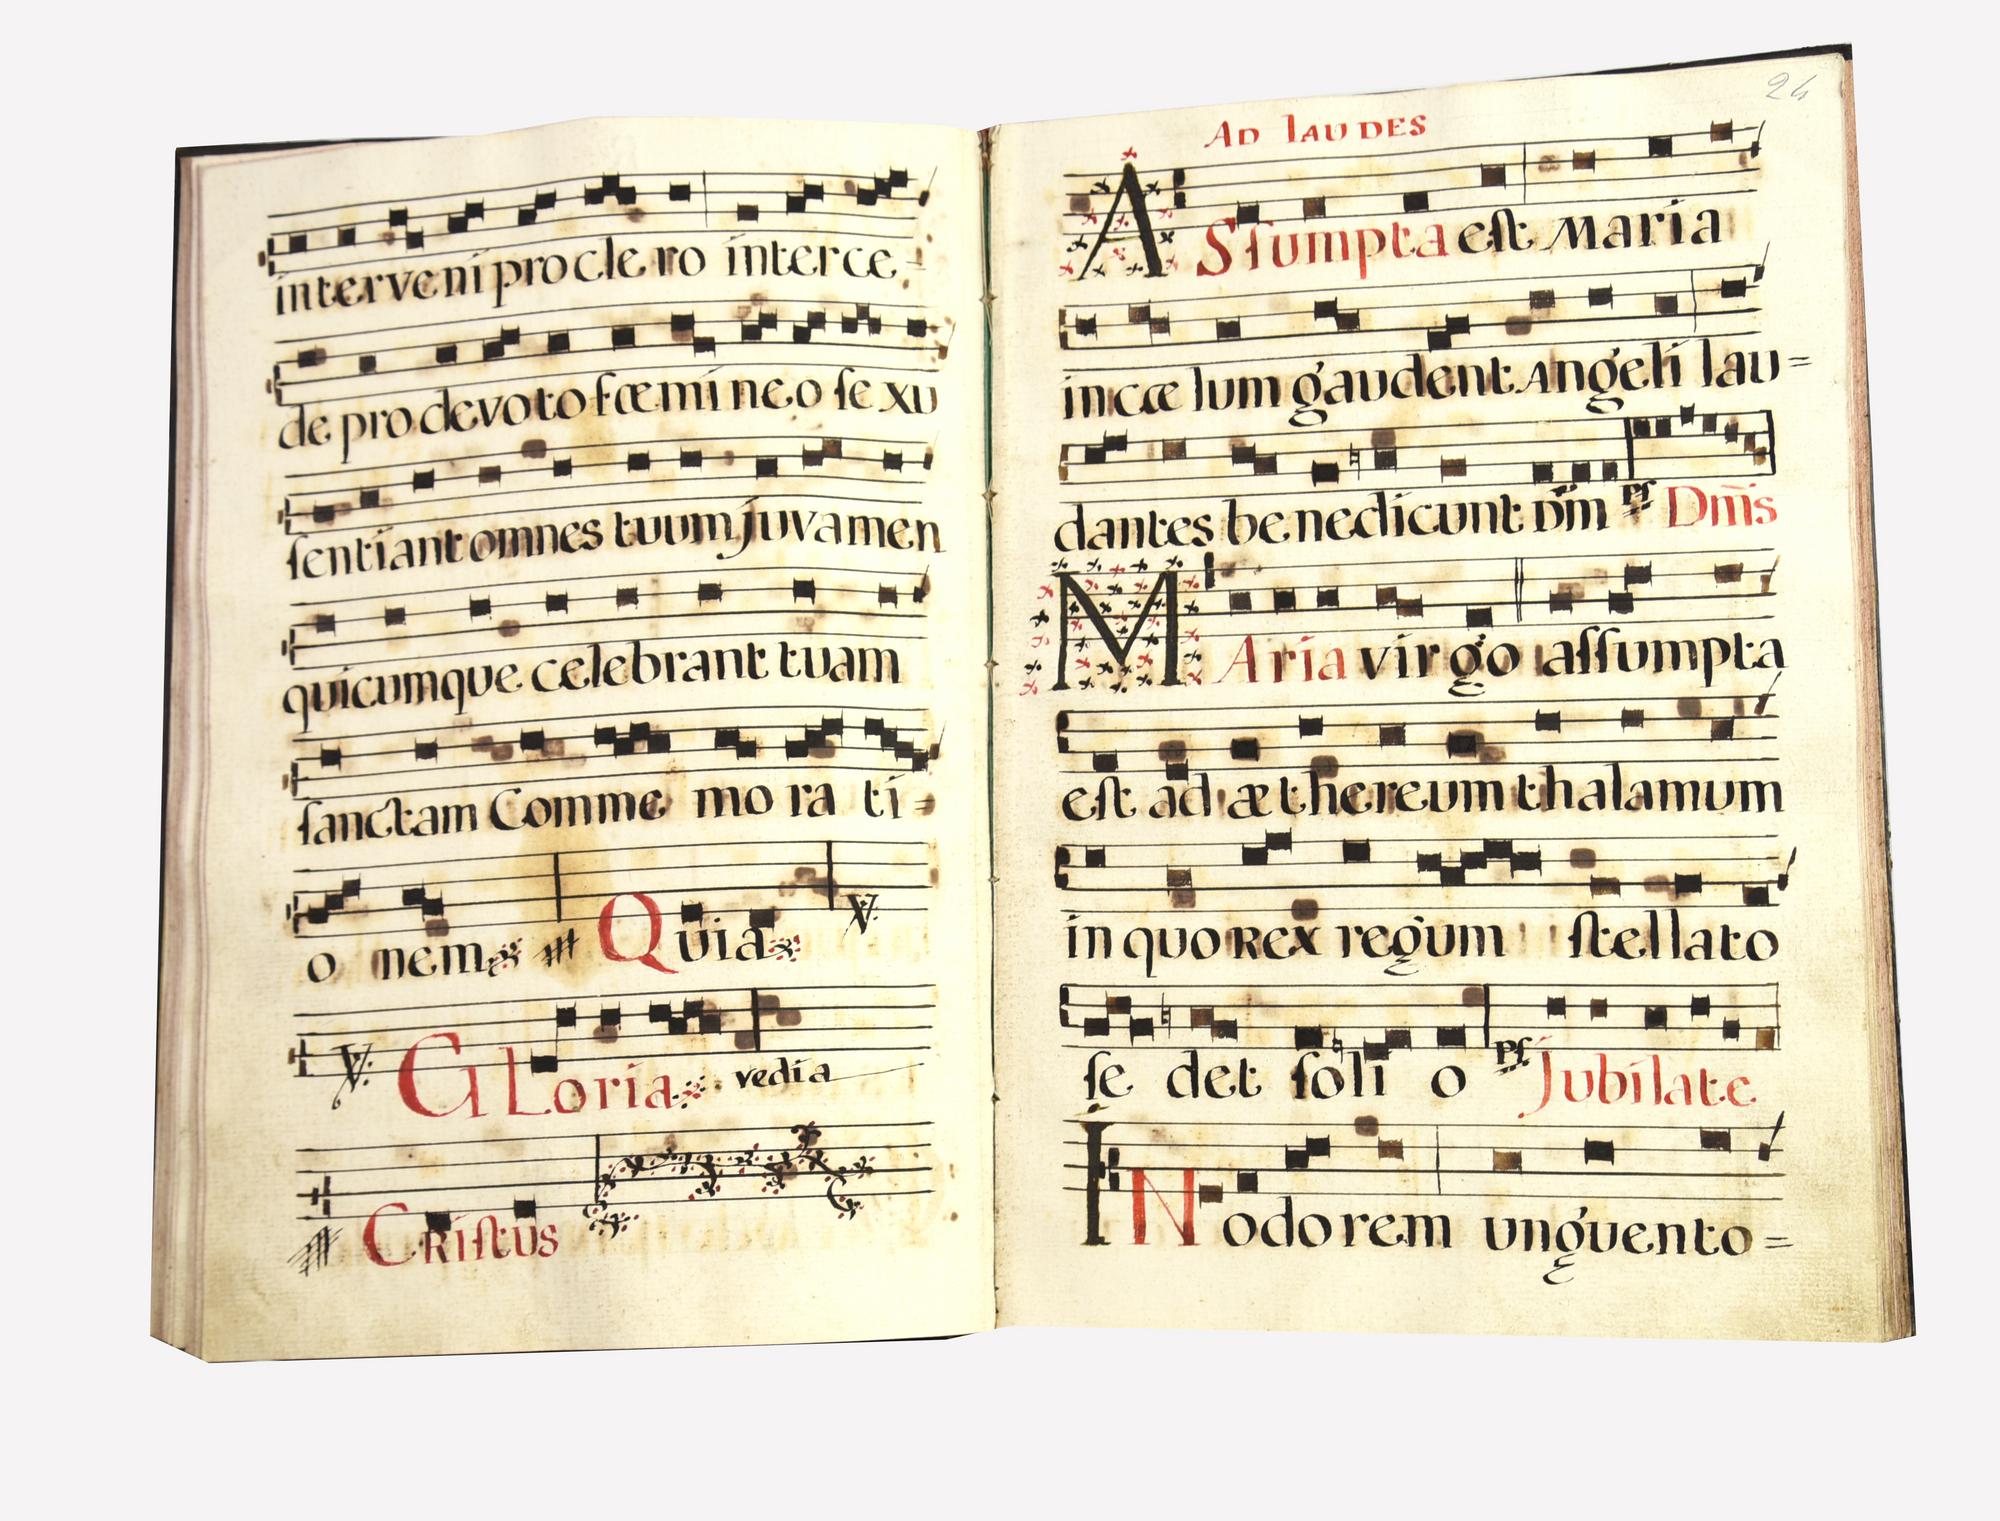 interveni pro cle ro interce-
de pro devoto fœmineo sexu
ſentiant omnes tuum juvamen
quicumque celebrant tuam
ſanctam Comme mo ra ti=
o nem Quia V.
V. GLoria vedia
CRiſtus
24
AD LAUDES
ASſumpta eſt Maria
in cæ lum gaudent Angeli lau=
dantes benedicunt Dm̄ ps Dm̄s
MAria virgo aſſumpta
eſt ad æthereum thalamum
in quo Rex regum ſtellato
ſe det ſoli o ps Jubilate
IN odorem unguento=